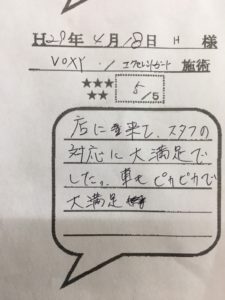 H29年4月18日 H 様
VOXY ・/ エクセレントガード 施術
★★★
★★
5/5
店に来て、スタフの
対応に大満足で
した。車もピカピカで
大満足